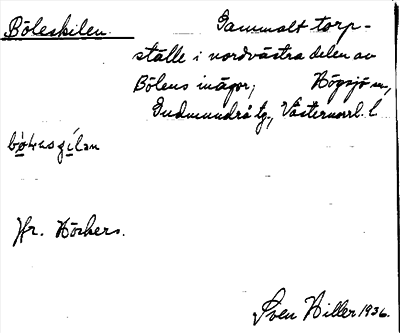 Böleskilen. Gammalt torp-
ställe i nordvästra delen av
Bölens inägor, Högsjö sn,
Gudmundrå tg, Västernorrl. l
Hr. Höckers.
Sven Hiller 1936.